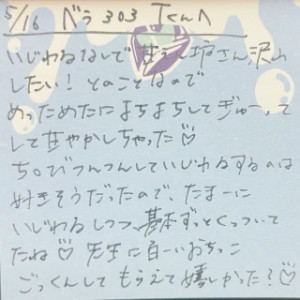 5/16 べう303 Tくんへ
いじわるなしで 甘えん坊さん沢山
したい! とのことなので
めっためたにまちまちしてぎゅーって
して甘やかしちゃった♡
ち○びつんつんしていじわるするのは
好きそうだったので、たまーに
いじわるしつつ基本ずっとくっついて
たね♡ 先生に白ーいおちっこ
ごっくんしてもらえて嬉しかった?♡